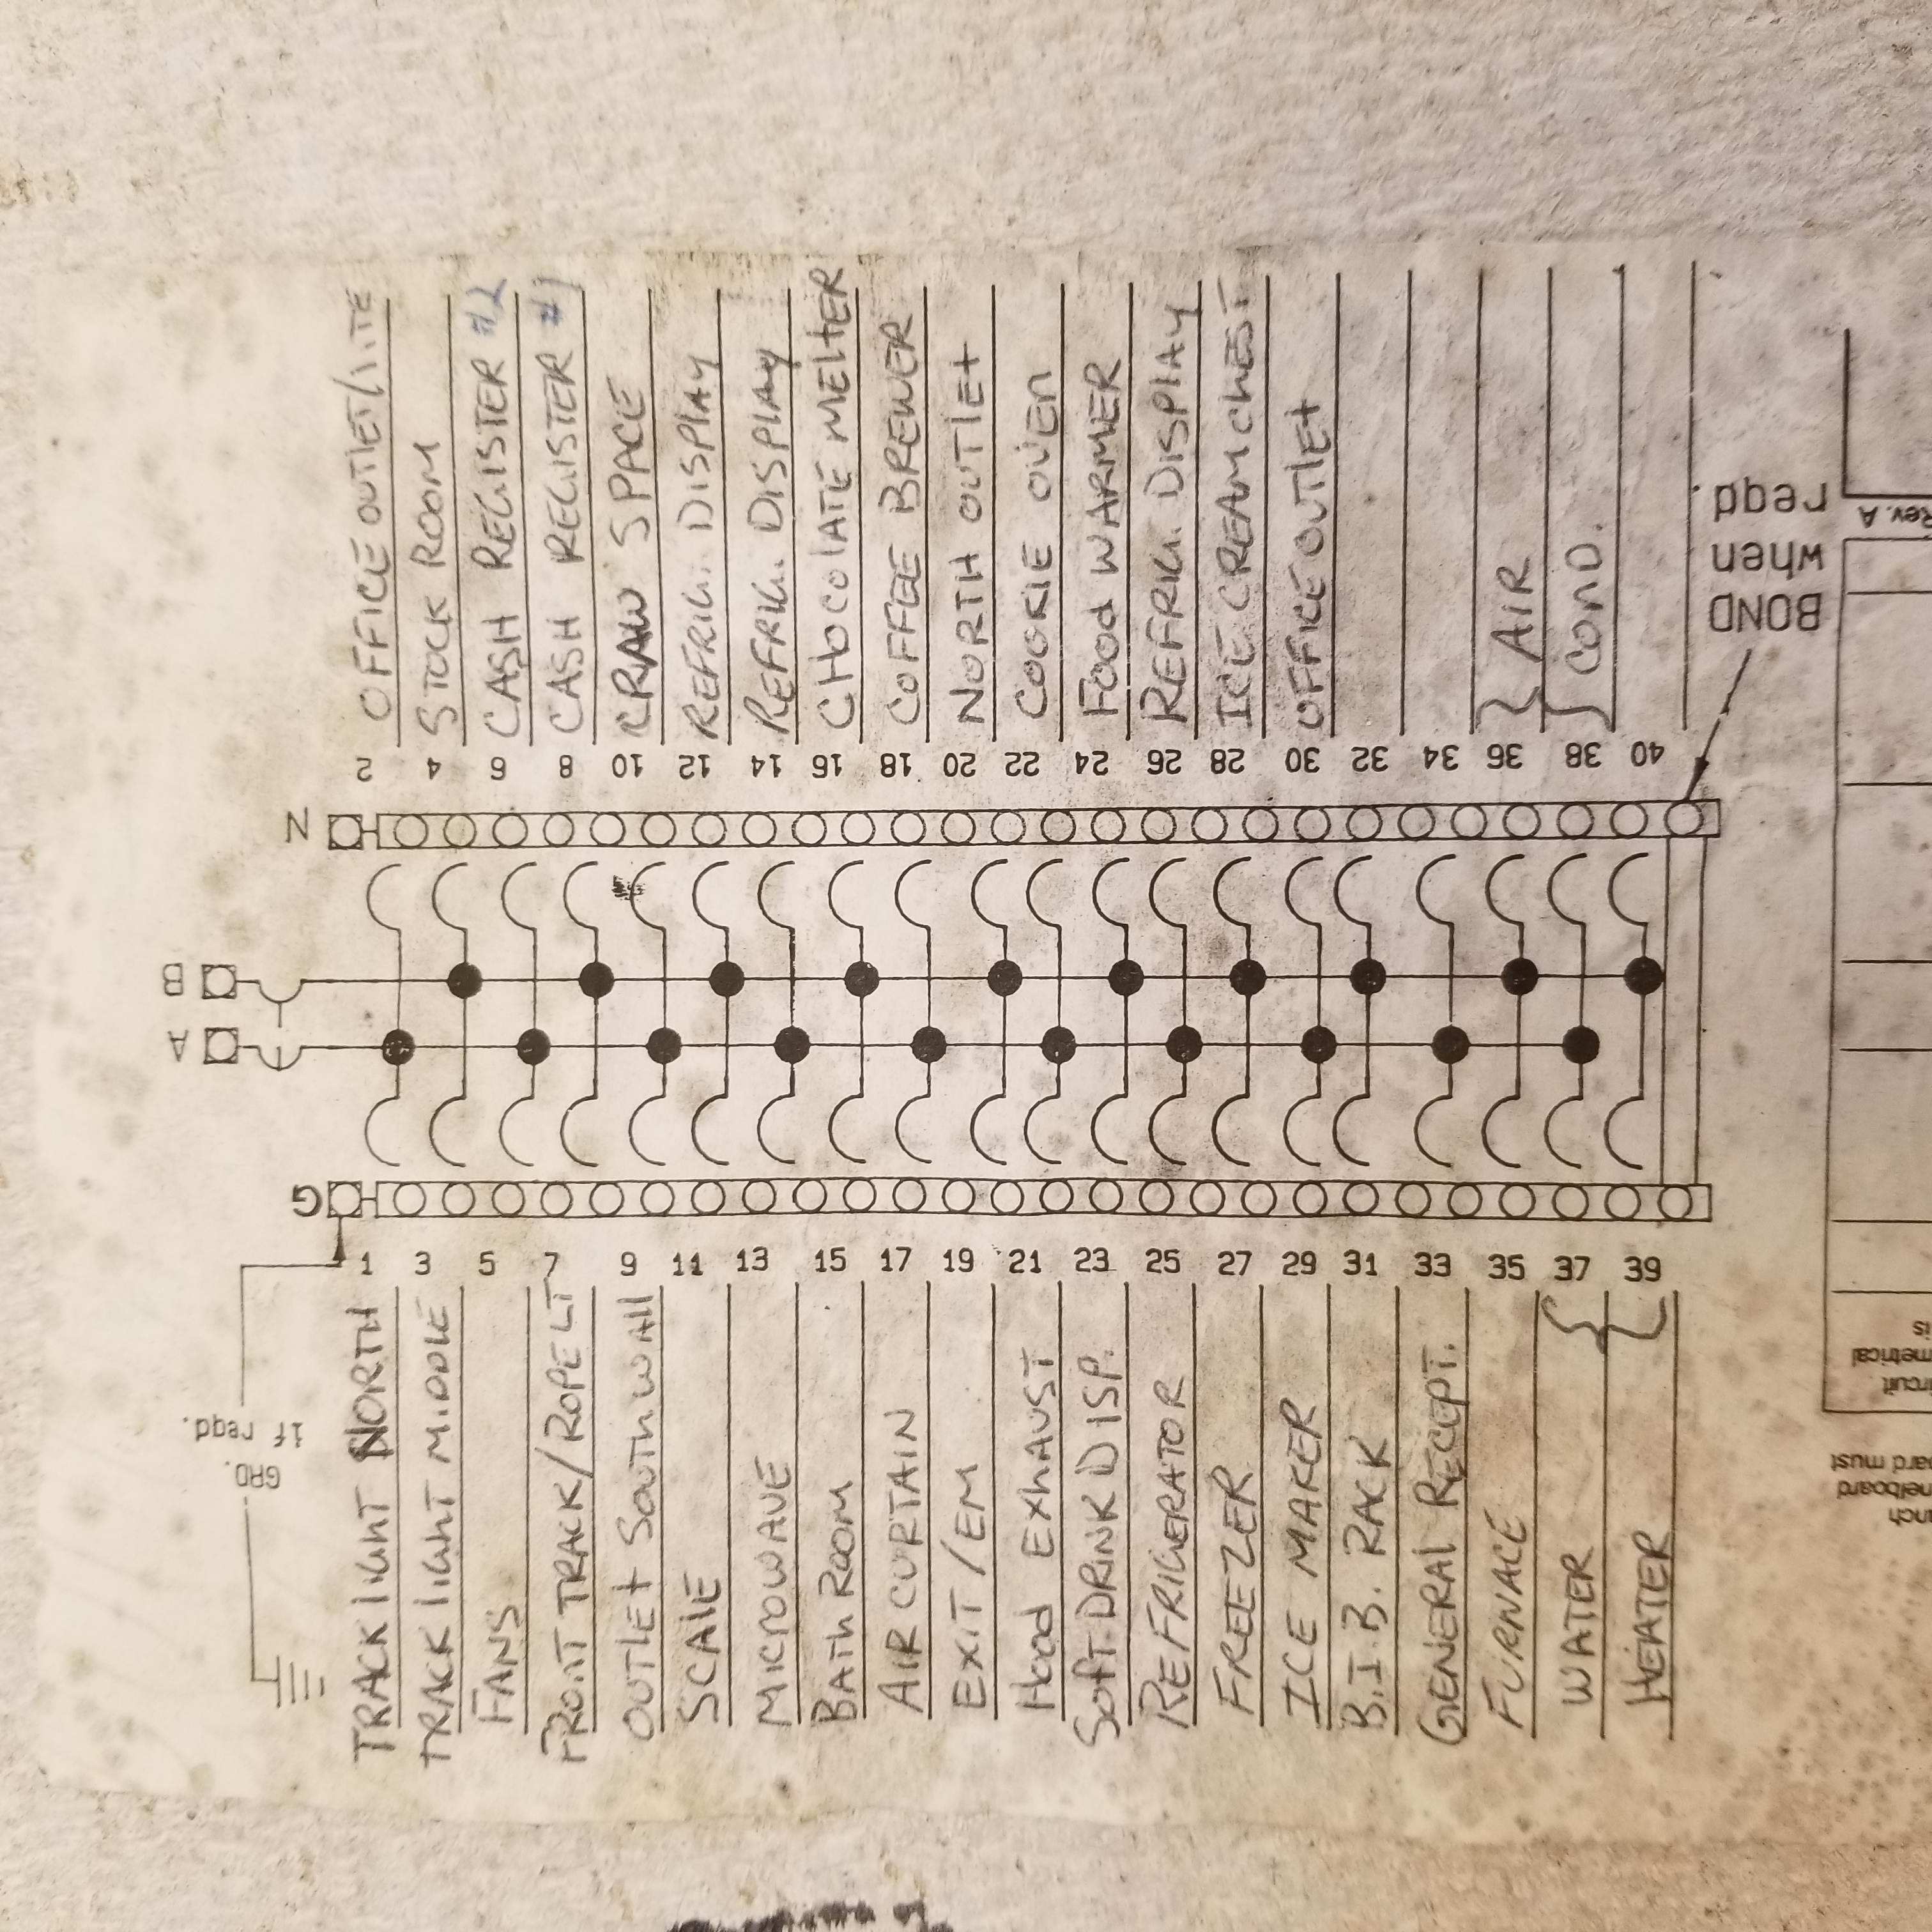 2 OFFICE OUTLET/LITE
4 STOCK ROOM
6 CASH REGISTER #2
8 CASH REGISTER #1
10 CRAW SPACE
12 REFRIG. DISPLAY
14 REFRIG. DISPLAY
16 CHOCOLATE MELTER
18 COFFEE BREWER
20 NORTH OUTLET
22 COOKIE OVEN
24 FOOD WARMER
26 REFRIG. DISPLAY
28 ICE CREAM CHEST
30 OFFICE OUTLET
32
34
36 AIR
38 COND.
40
BOND
when
reqd.
Rev. A
N
B
A
G
1 TRACK LIGHT NORTH
3 TRACK LIGHT MIDDLE
5 FANS
7 FRONT TRACK/ROPE LT
9 OUTLET SOUTH WALL
11 SCALE
13 MICROWAVE
15 BATH ROOM
17 AIR CURTAIN
19 EXIT/EM
21 HOOD EXHAUST
23 SOFT DRINK DISP.
25 REFRIGERATOR
27 FREEZER
29 ICE MAKER
31 B.I.B. RACK
33 GENERAL RECEPT.
35 FURNACE
37 WATER
39 HEATER
GRD.
if reqd.
is
must